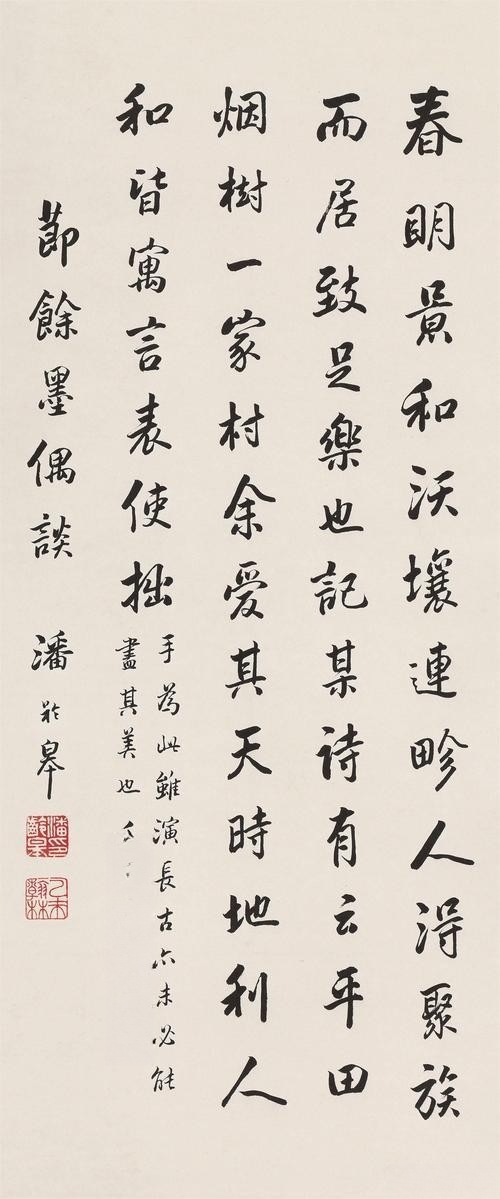 春明景和沃壤連畛人得聚族
而居致足樂也記某詩有云平田
烟樹一家村余愛其天時地利人
和皆寓言表使拙
手為此雖演長古亦未必能
盡其美也
節餘墨偶談
潘齡皋
潘齡皋印
乙未翰林